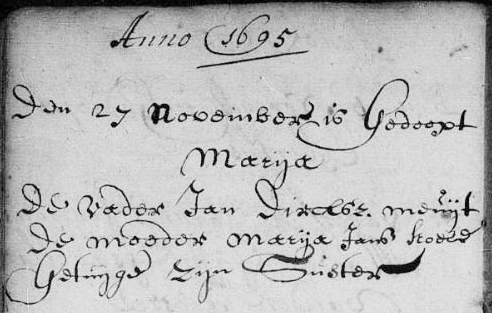 Anno 1695
Den 27 November is Gedoopt
Marija
De Vader Jan Dirckse.
de moeder Marija Jans
Getuijge Zijn Suster